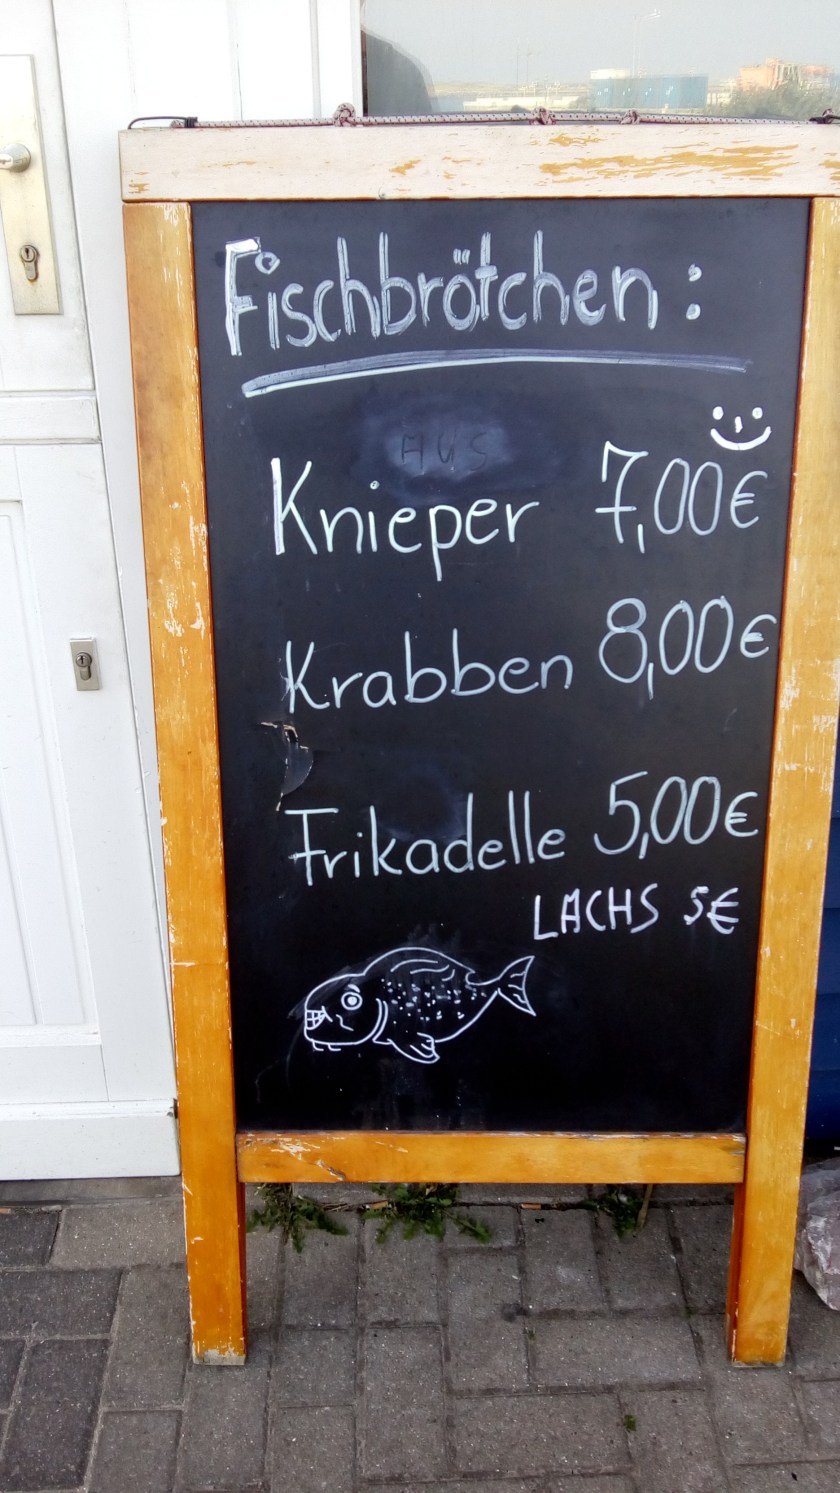 Fischbrötchen:
AUS
Knieper 7,00€
Krabben 8,00€
Frikadelle 5,00€
LACHS 5€